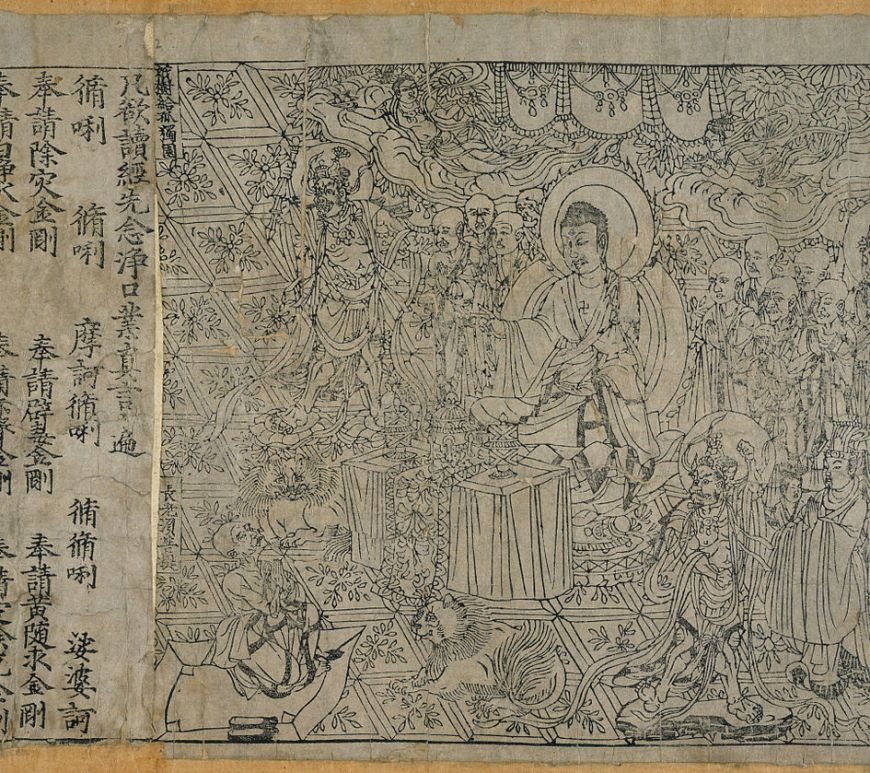 祇樹給孤獨園
長老須菩提
凡欲讀經先念淨口業真言一遍
脩唎 脩唎 摩訶脩唎 脩脩唎 娑婆訶
奉請除灾金剛 奉請辟毒金剛 奉請黄随求金剛
奉請白淨水金剛 奉請 金剛 奉請 金剛